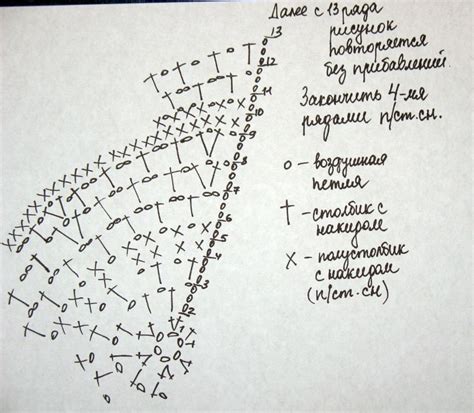 Далее с 13 ряда
рисунок
повторяется
без прибавлений.
Закончить 4-мя
рядами п/ст.сн.
o - воздушная
петля
† - столбик с
накидом
X - полустолбик
с накидом
(п/ст.сн)
13
12
11
10
9
8
7
6
5
4
3
2
1